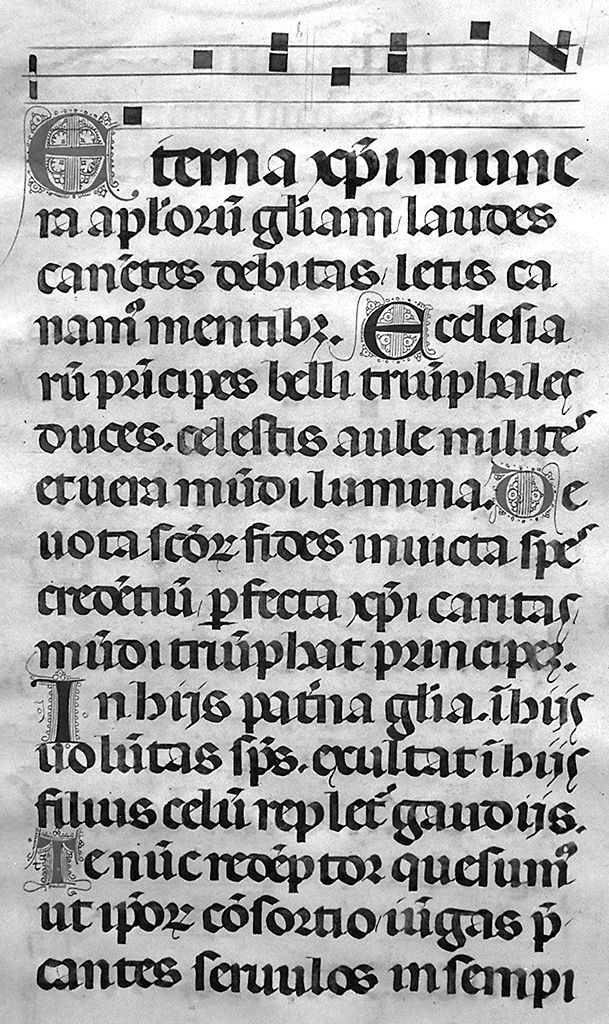 Eterna xp̄i mune
ra apl̓oꝛū gl̓iam laudes
canētes debitas / letis ca
namꝰ mentibꝫ. Ecclesia
rū pͥncipes belli triūphales
duces. celestis aule milites
et uera mūdi lumina. De
uota scōꝝ fides inuicta spes
credētiū / ꝑfecta xp̄i caritas
mūdi triūphat principeꝫ.
In hijs pat̓na gl̓ia. ī hijs
uolūtas sp̄s. exultat ī hijs
filius celū repletᷣ gaudijs.
Te nūc redēptor quesumꝰ
ut ip̄oꝝ cōsortio / iūgas p̄
cantes seruulos in sempi